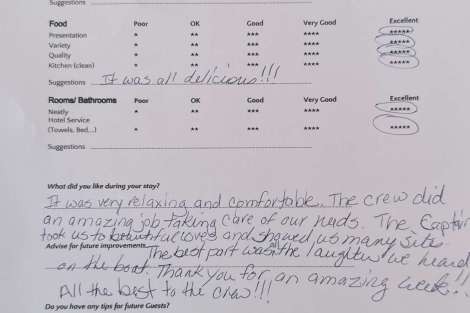 Suggestions
Food Poor OK Good Very Good Excellent
Presentation * ** *** **** *****
Variety * ** *** **** *****
Quality * ** *** **** *****
Kitchen (clean) * ** *** **** *****
Suggestions It was all delicious!!!
Rooms/ Bathrooms Poor OK Good Very Good Excellent
Neatly * ** *** **** *****
Hotel Service
(Towels, Bed...) * ** *** **** *****
Suggestions
What did you like during your stay?
It was very relaxing and comfortable. The crew did
an amazing job taking care of our needs. The Captain
took us to beautiful coves and showed us many sites.
Advise for future improvements The best part was all the laughter we heard
on the boat. Thank you for an amazing week!!
All the best to the crew!!!
Do you have any tips for future Guests?